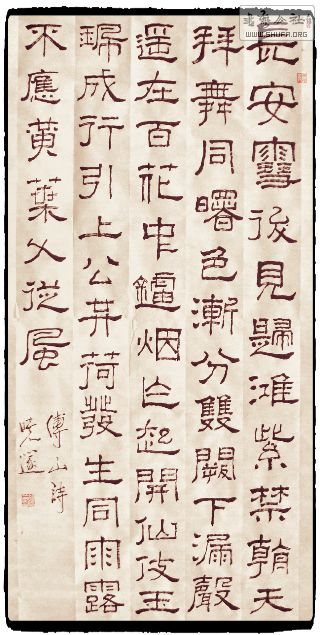 長安雪後見歸鴻紫禁朝天
拜舞同曙色漸分雙闕下漏聲
遥在百花中鑪烟乍起開仙仗玉
成行引上公共荷發生同雨露
不應黄葉久從風
傅山詩
WWW.SHUFA.ORG